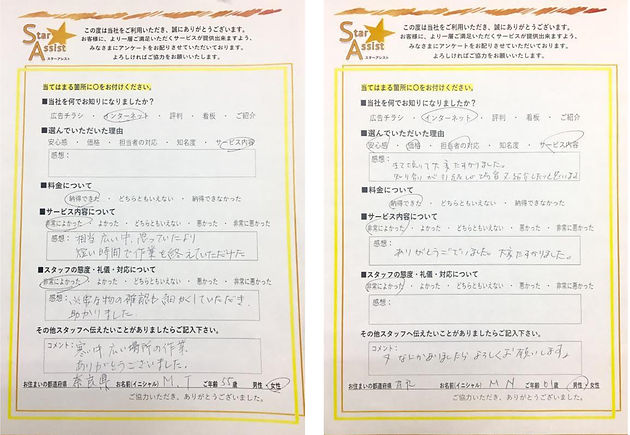 Star
Assist
スターアシスト
この度は当社をご利用いただき、誠にありがとうございます。
お客様に、より一層ご満足いただくサービスが提供出来ますよう、
みなさまにアンケートをお配りさせていただいております。
よろしければご協力をお願いいたします。
当てはまる箇所に〇をお付けください。
■当社を何でお知りになりましたか?
広告チラシ ・ インターネット ・ 評判 ・ 看板 ・ ご紹介
■選んでいただいた理由
安心感 ・ 価格 ・ 担当者の対応 ・ 知名度 ・ サービス内容
感想:
■料金について
納得できた ・ どちらともいえない ・ 納得できなかった
■サービス内容について
非常によかった ・ よかった ・ どちらともいえない ・ 悪かった ・ 非常に悪かった
感想: 相当広い中、思っていたより
短い時間で作業を終えていただけた
■スタッフの態度・礼儀・対応について
非常によかった ・ よかった ・ どちらともいえない ・ 悪かった ・ 非常に悪かった
感想: 必要な物の確認も細かくしていただき、
助かりました
その他スタッフへ伝えたいことがありましたらご記入下さい。
コメント: 寒い中広い場所の作業
ありがとうございました。
お住まいの都道府県 奈良県 お名前(イニシャル) M.T ご年齢 55 歳 男性・女性
ご協力いただき、ありがとうございました。
Star
Assist
スターアシスト
この度は当社をご利用いただき、誠にありがとうございます。
お客様に、より一層ご満足いただくサービスが提供出来ますよう、
みなさまにアンケートをお配りさせていただいております。
よろしければご協力をお願いいたします。
当てはまる箇所に〇をお付けください。
■当社を何でお知りになりましたか?
広告チラシ ・ インターネット ・ 評判 ・ 看板 ・ ご紹介
■選んでいただいた理由
安心感 ・ 価格 ・ 担当者の対応 ・ 知名度 ・ サービス内容
感想: 大変たすかりました。
■料金について
納得できた ・ どちらともいえない ・ 納得できなかった
■サービス内容について
非常によかった ・ よかった ・ どちらともいえない ・ 悪かった ・ 非常に悪かった
感想:
ありがとうございました。大変たすかりました。
■スタッフの態度・礼儀・対応について
非常によかった ・ よかった ・ どちらともいえない ・ 悪かった ・ 非常に悪かった
感想:
その他スタッフへ伝えたいことがありましたらご記入下さい。
コメント:
なにかありましたらよろしくお願いします。
お住まいの都道府県 奈良 お名前(イニシャル) M N ご年齢 61 歳 男性・女性
ご協力いただき、ありがとうございました。